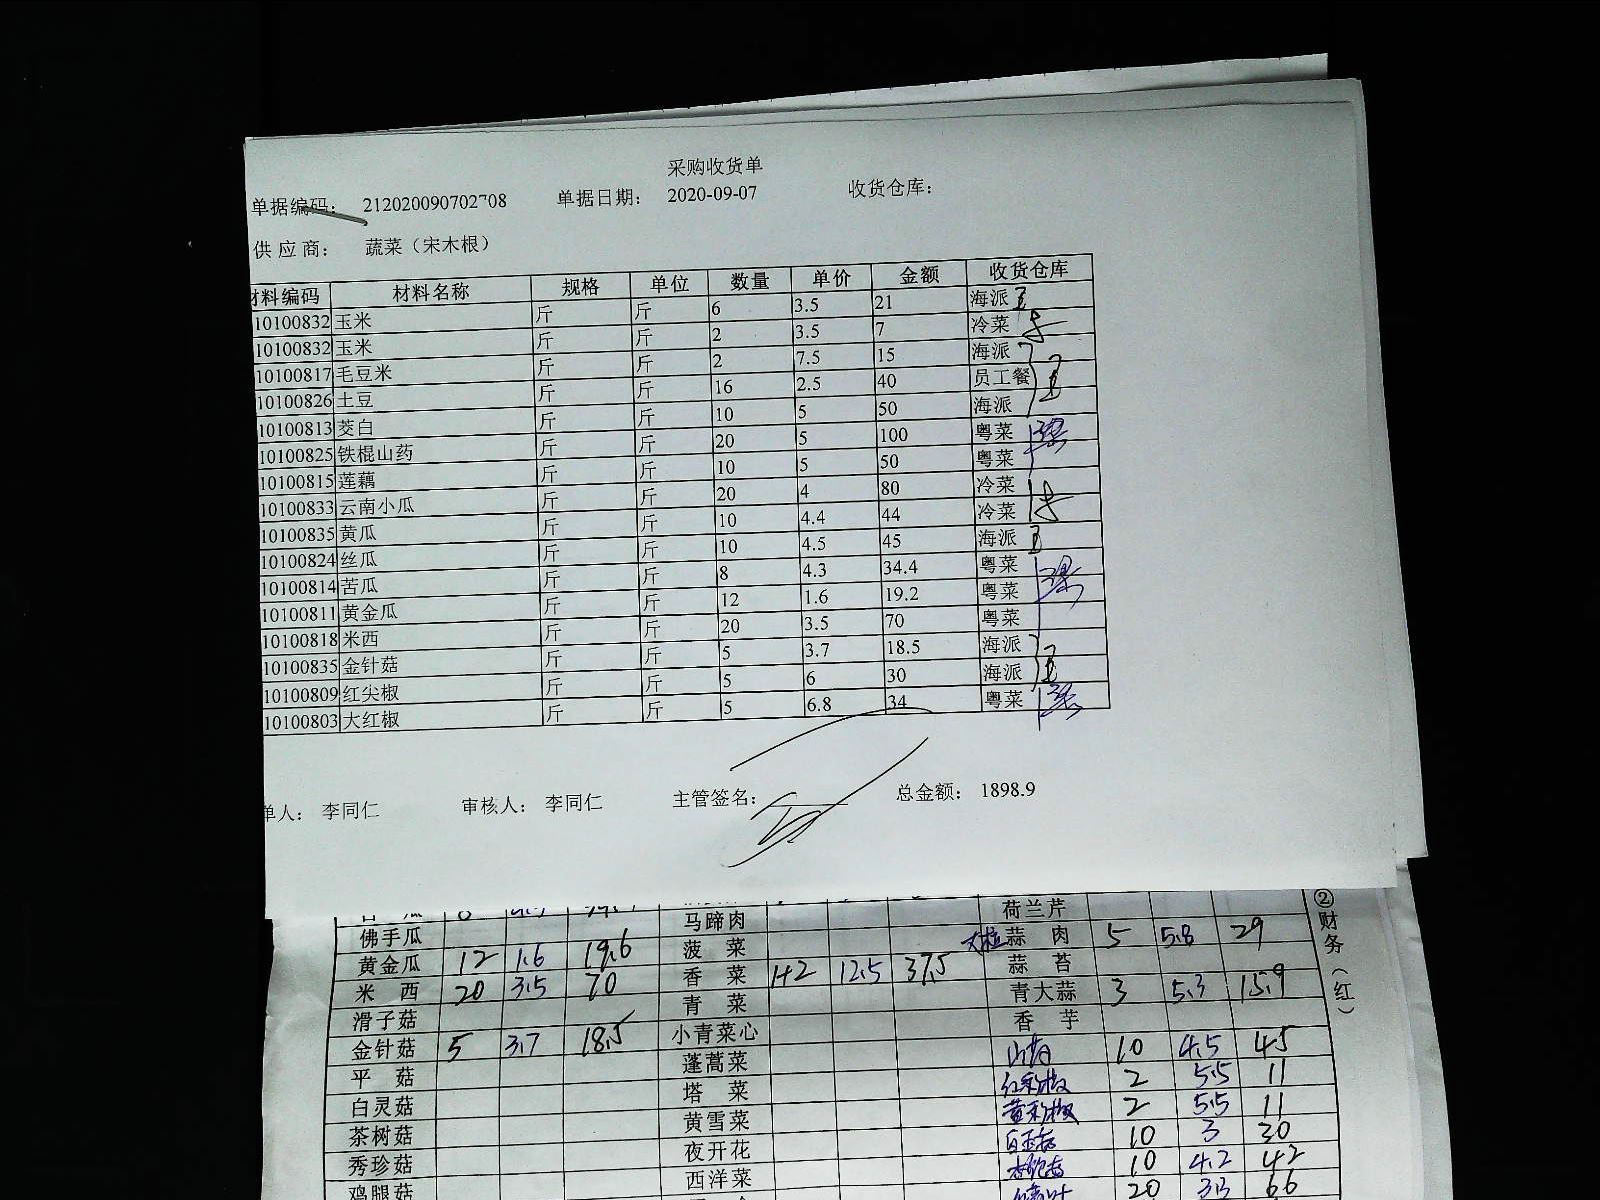 采购收货单
单据编码： 212020090702708 单据日期： 2020-09-07 收货仓库：
供应商： 蔬菜（宋木根）
材料编码 材料名称 规格 单位 数量 单价 金额 收货仓库
10100832 玉米 斤 斤 6 3.5 21 海派
10100832 玉米 斤 斤 2 3.5 7 冷菜
10100817 毛豆米 斤 斤 2 7.5 15 海派
10100826 土豆 斤 斤 16 2.5 40 员工餐
10100813 茭白 斤 斤 10 5 50 海派
10100825 铁棍山药 斤 斤 20 5 100 粤菜
10100815 莲藕 斤 斤 10 5 50 粤菜
10100833 云南小瓜 斤 斤 20 4 80 冷菜
10100835 黄瓜 斤 斤 10 4.4 44 冷菜
10100824 丝瓜 斤 斤 10 4.5 45 海派
10100814 苦瓜 斤 斤 8 4.3 34.4 粤菜
10100811 黄金瓜 斤 斤 12 1.6 19.2 粤菜
10100818 米西 斤 斤 20 3.5 70 粤菜
10100835 金针菇 斤 斤 5 3.7 18.5 海派
10100809 红尖椒 斤 斤 5 6 30 海派
10100803 大红椒 斤 斤 5 6.8 34 粤菜
单人： 李同仁 审核人： 李同仁 主管签名： 总金额： 1898.9
马蹄肉 荷兰芹
佛手瓜 菠菜 大粒蒜肉 5 5.8 29
黄金瓜 12 1.6 19.6 香菜 1+2 12.5 37.5 蒜苔
米西 20 3.5 70 青菜 青大蒜 3 5.3 15.9
滑子菇 小青菜心 香芋
金针菇 5 3.7 18.5 蓬蒿菜 山药 10 4.5 45
平菇 塔菜 红彩椒 2 5.5 11
白灵菇 黄雪菜 黄彩椒 2 5.5 11
茶树菇 夜开花 10 3 30
秀珍菇 西洋菜 10 4.2 42
鸡腿菇 20 3.3 66
②财务（红）